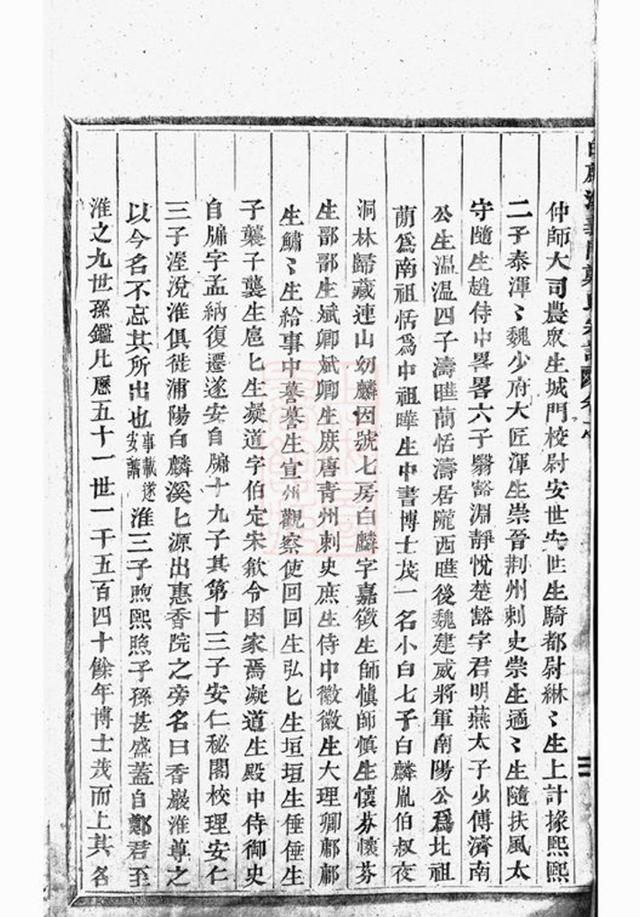 仲師大司農眾生城門校尉安世安世生騎都尉綝〻生上計掾熙熙
二子泰渾〻魏少府大匠渾生崇晉荆州刺史崇生遹〻生隨扶風太
守隨生趙侍中畧畧六子翳豁淵靜悅楚豁字君明燕太子少傅濟南
公生温温四子濤曄蕳恬濤居隴西曄後魏建威將軍南陽公爲北祖
蕳爲南祖恬爲中祖曄生中書博士茂一名小白七子白麟胤伯叔夜
洞林歸藏連山幼麟因號七房白麟字嘉徵生師愼師愼生懷芬懷芬
生鄑鄑生斌卿斌卿生庶唐青州刺史庶生侍中徽徽生大理卿鄘鄘
生鏽〻生給事中蕃蕃生宣州觀察使回回生弘匕生垣垣生倕倕生
子襲子襲生扈匕生凝道字伯定宋歙令因家焉凝道生殿中侍御史
自牗字孟納復遷遂安自牗十九子其第十三子安仁秘閣校理安仁
三子渥涚淮俱徙浦陽白麟溪匕源出惠香院之旁名曰香巖淮尊之
以今名不忘其所出也事載遂安譜淮三子煦熙照子孫甚盛蓋自鄭君至
淮之九世孫鑑凡歷五十一世一千五百四十餘年博士茂而上其名